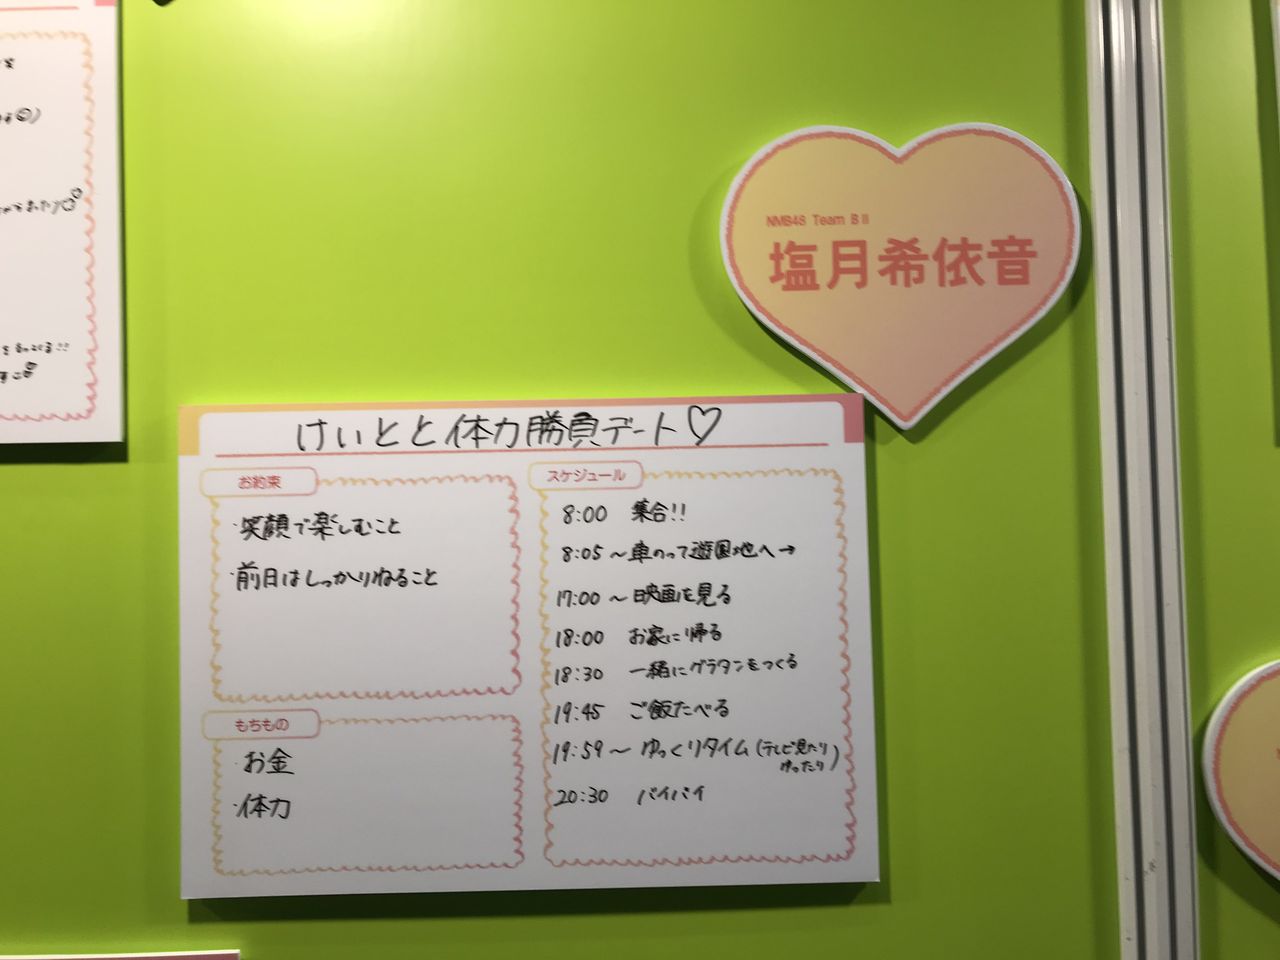 NMB48 Team BⅡ
塩月希依音
けいとと体力勝負デート♡
お約束
・笑顔で楽しむこと
・前日はしっかりねること
もちもの
・お金
・体力
スケジュール
8:00 集合!!
8:05～車のって遊園地へ→
17:00～映画を見る
18:00 お家に帰る
18:30 一緒にグラタンをつくる
19:45 ご飯たべる
19:59～ゆっくりタイム(テレビ見たり
ゆったり)
20:30 バイバイ